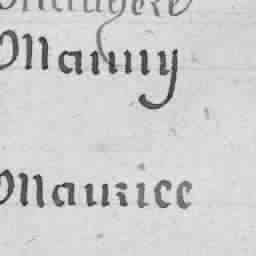 Manny
Maurice